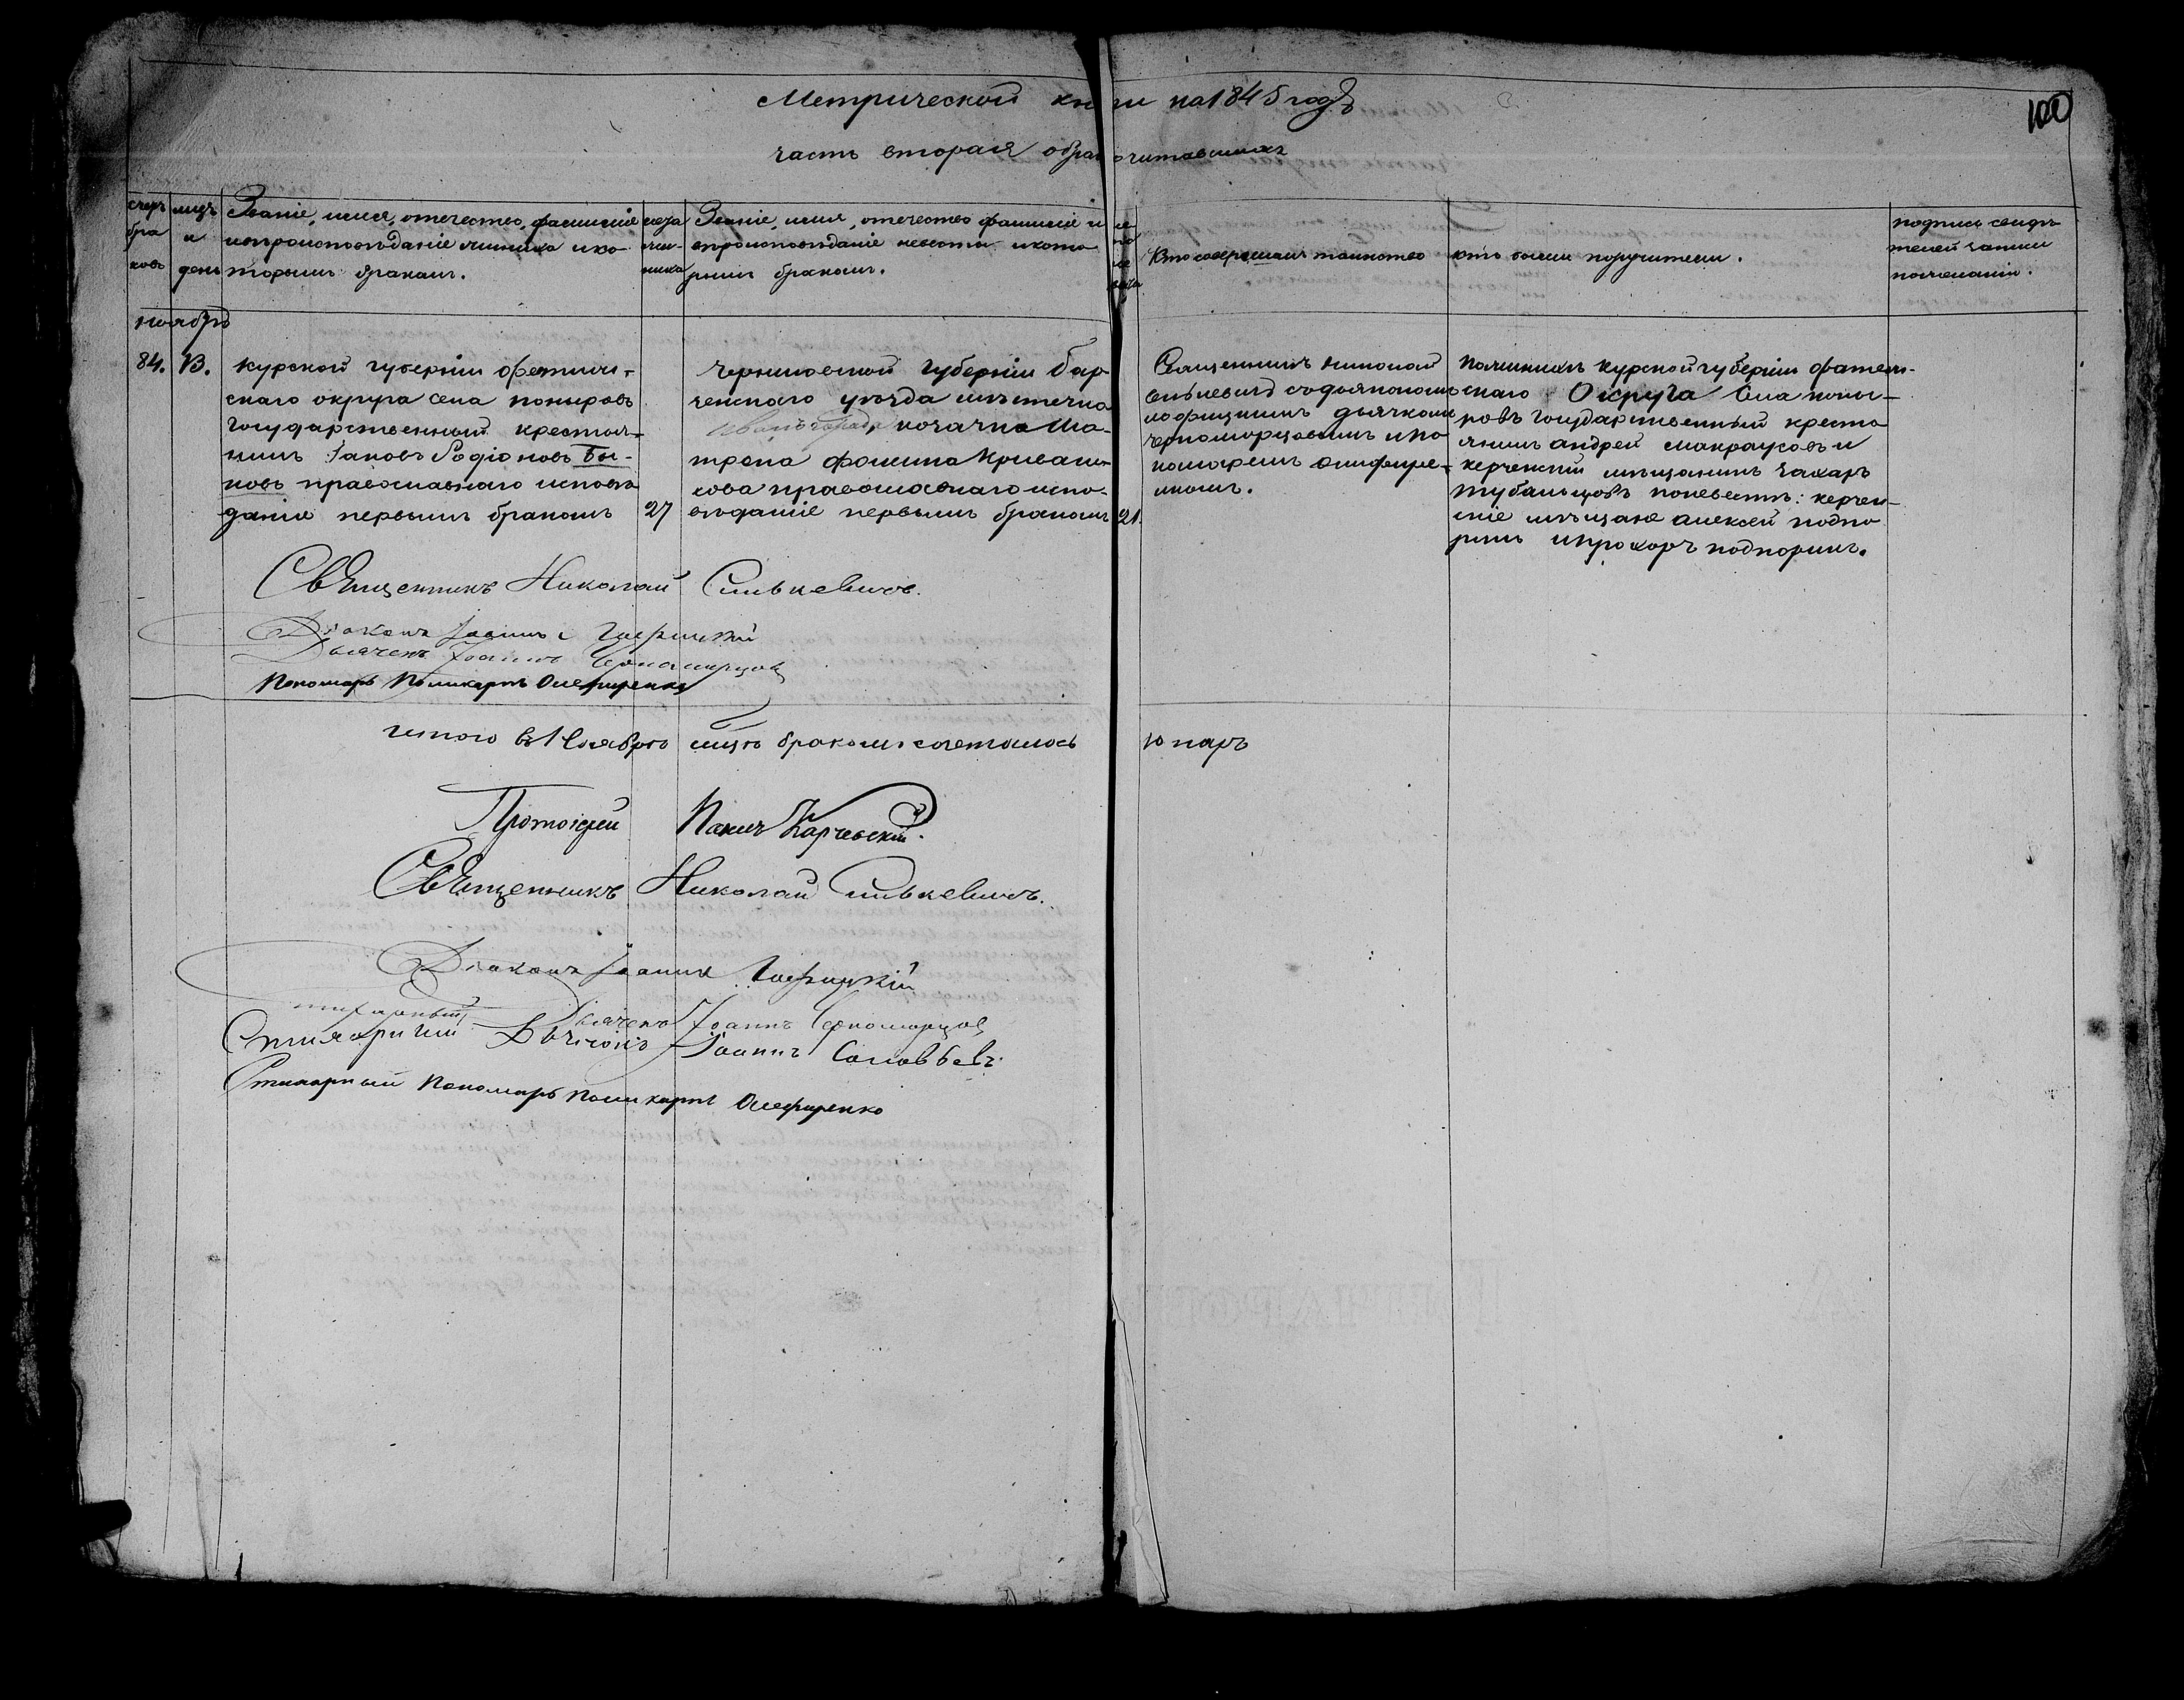 Метрической книги на 1845 годъ
100
часть вторая о бракосочитавшихся
счетъ браковъ
мцъ и день
Званіе, имя, отечество, фамилія
и вѣроисповѣданіе жениха и ко-
торымъ бракомъ.
лета
жени-
жениха
Званіе, имя, отечество фамиліе и
вѣроисповѣданіе невесты и кото
рымъ бракомъ.
Кто совершалъ таинство
кто были поручители.
подпись свидѣ
телей записи
по желанію.
ноябрь
84.
13.
Курской губерніи фатежи-
скаго округа села поныровъ
Государственный крестья-
нинъ Іаковъ Родіоновъ Бы-
ковъ православнаго исповѣ
данія первымъ бракомъ
27
Черниговской губерніи Бор
зенскаго уѣзда мѣстечка
Иваньгорода, козачка Ма-
трона фомина Криваш
кова православнаго испо-
вѣданіе первымъ бракомъ
21.
Священникъ Николай
Синькевичъ со дьякономъ
дьячкомъ
Черноморцовымъ и по
номаремъ Олифире-
нкомъ.
По женихѣ Курской губерніи фатеж-
скаго Округа села поны-
ровъ государственный кресть
янинъ андрей макрауковъ и
керченскій мѣщанинъ Захаръ
Тубальцовъ по невестѣ: керчен-
скіе мѣщане алексей подпо
ринъ и прохоръ подпоринъ.
Священникъ Николай Синькевичъ.
Діаконъ Іоаннъ
Дьячекъ Іоаннъ Черноморцовъ
Пономарь Поликарпъ Олефиренко
Итого въ Ноябрѣ мцѣ бракомъ сочеталось 10 паръ
Протоіерей Павелъ Карчевскій.
Священникъ Николай Синькевичъ.
Діаконъ Іоаннъ
Дьячекъ Іоаннъ Черноморцовъ
Стихарный Дьячокъ Іоаннъ Соловьевъ
Стихарный Пономарь Поликарпъ Олефиренко